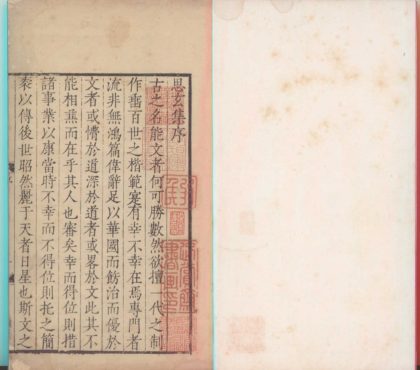 思玄集序
古之名能文者何可勝數然欲擅一代之制
作垂百世之楷範寔有幸不幸在焉專門者
流非無鴻篇偉辭足以華國而飭治而優於
文者或懵於道深於道者或畧於文此其不
能相兼而在乎其人也審矣幸而得位則措
諸事業以康當時不幸而不得位則托之簡
袠以得後世昭然麗于天者日星也斯文之